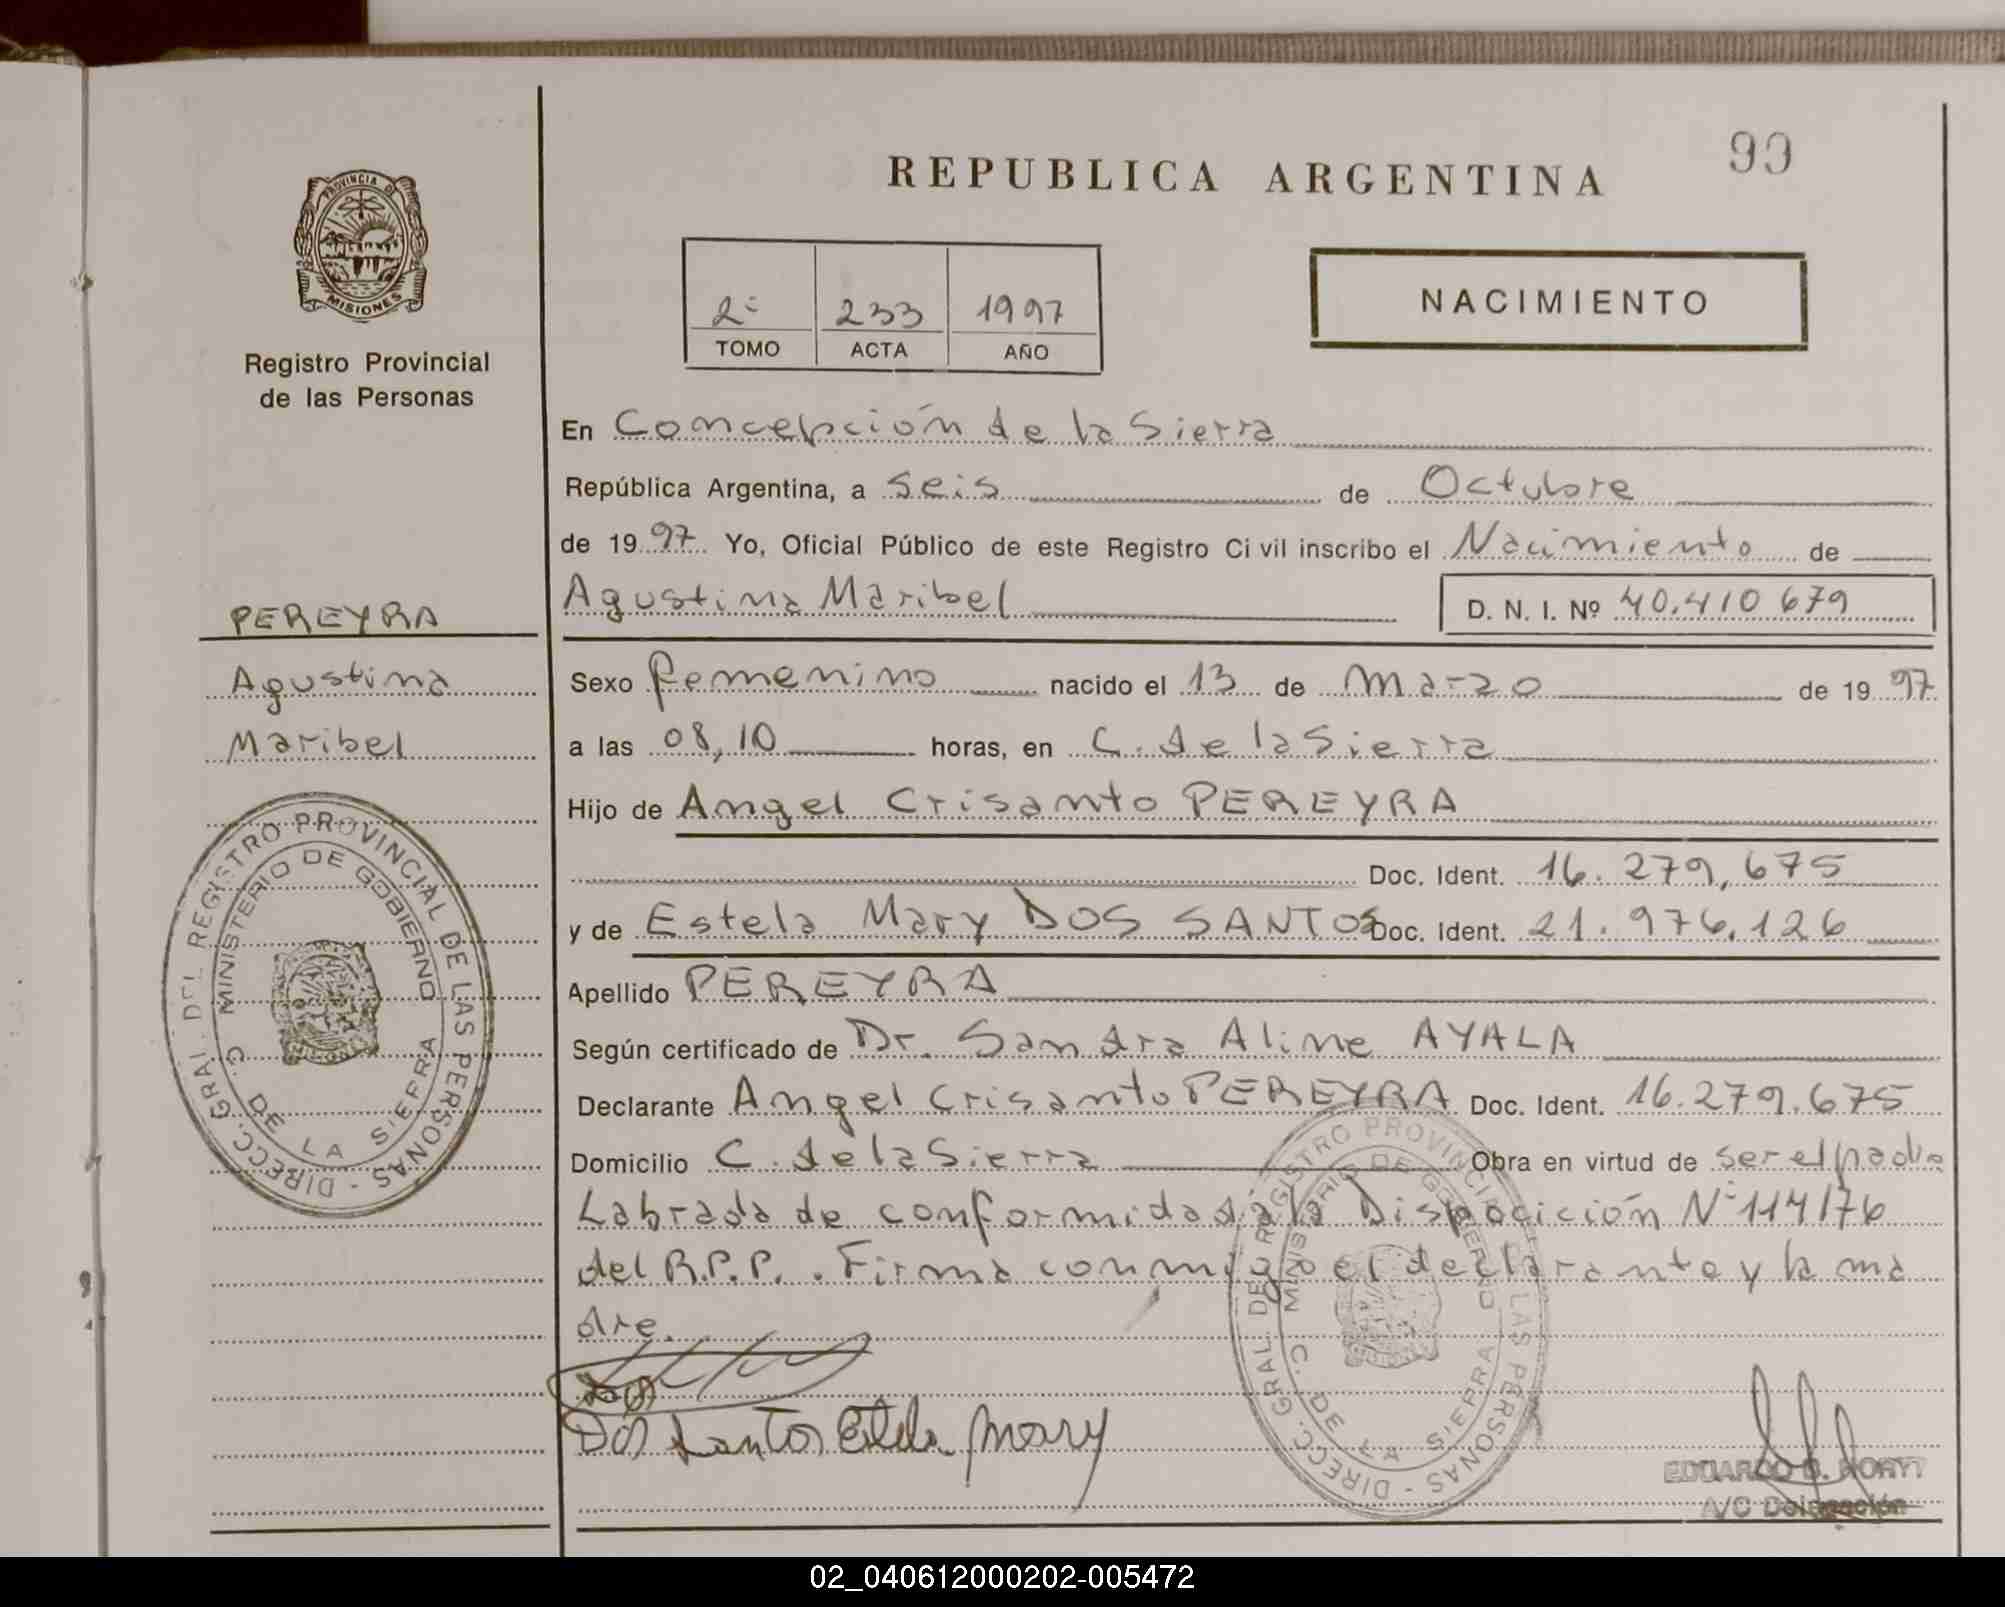 REPUBLICA ARGENTINA
99
PROVINCIA DE
MISIONES
Registro Provincial
de las Personas
2º 233 1997
TOMO ACTA AÑO
NACIMIENTO
En Concepción de la Sierra
República Argentina, a seis de Octubre
de 1997 Yo, Oficial Público de este Registro Civil inscribo el Nacimiento de
Agustina Maribel D. N. I. Nº 40.410 679
PEREYRA
Agustina
Maribel
Sexo femenino nacido el 13 de Marzo de 1997
a las 08,10 horas, en C. de la Sierra
Hijo de Angel Crisanto PEREYRA
Doc. Ident. 16.279,675
y de Estela Mary DOS SANTOS Doc. Ident. 21.976.126
Apellido PEREYRA
Según certificado de Dr. Sandra Aline AYALA
Declarante Angel Crisanto PEREYRA Doc. Ident. 16.279.675
Domicilio C. de la Sierra Obra en virtud de ser el padre
Labrada de conformidad a la Disposición Nº 114/76
del R.P.P. . Firma conmigo el declarante y la ma
dre.
Dos Santos Estela Mary
DIRECC. GRAL. DEL REGISTRO PROVINCIAL DE LAS PERSONAS -
MINISTERIO DE GOBIERNO
C. DE LA SIERRA
DIRECC. GRAL. DEL REGISTRO PROVINCIAL DE LAS PERSONAS -
MINISTERIO DE GOBIERNO
C. DE LA SIERRA
EDUARDO
A/C Delegación
02_040612000202-005472